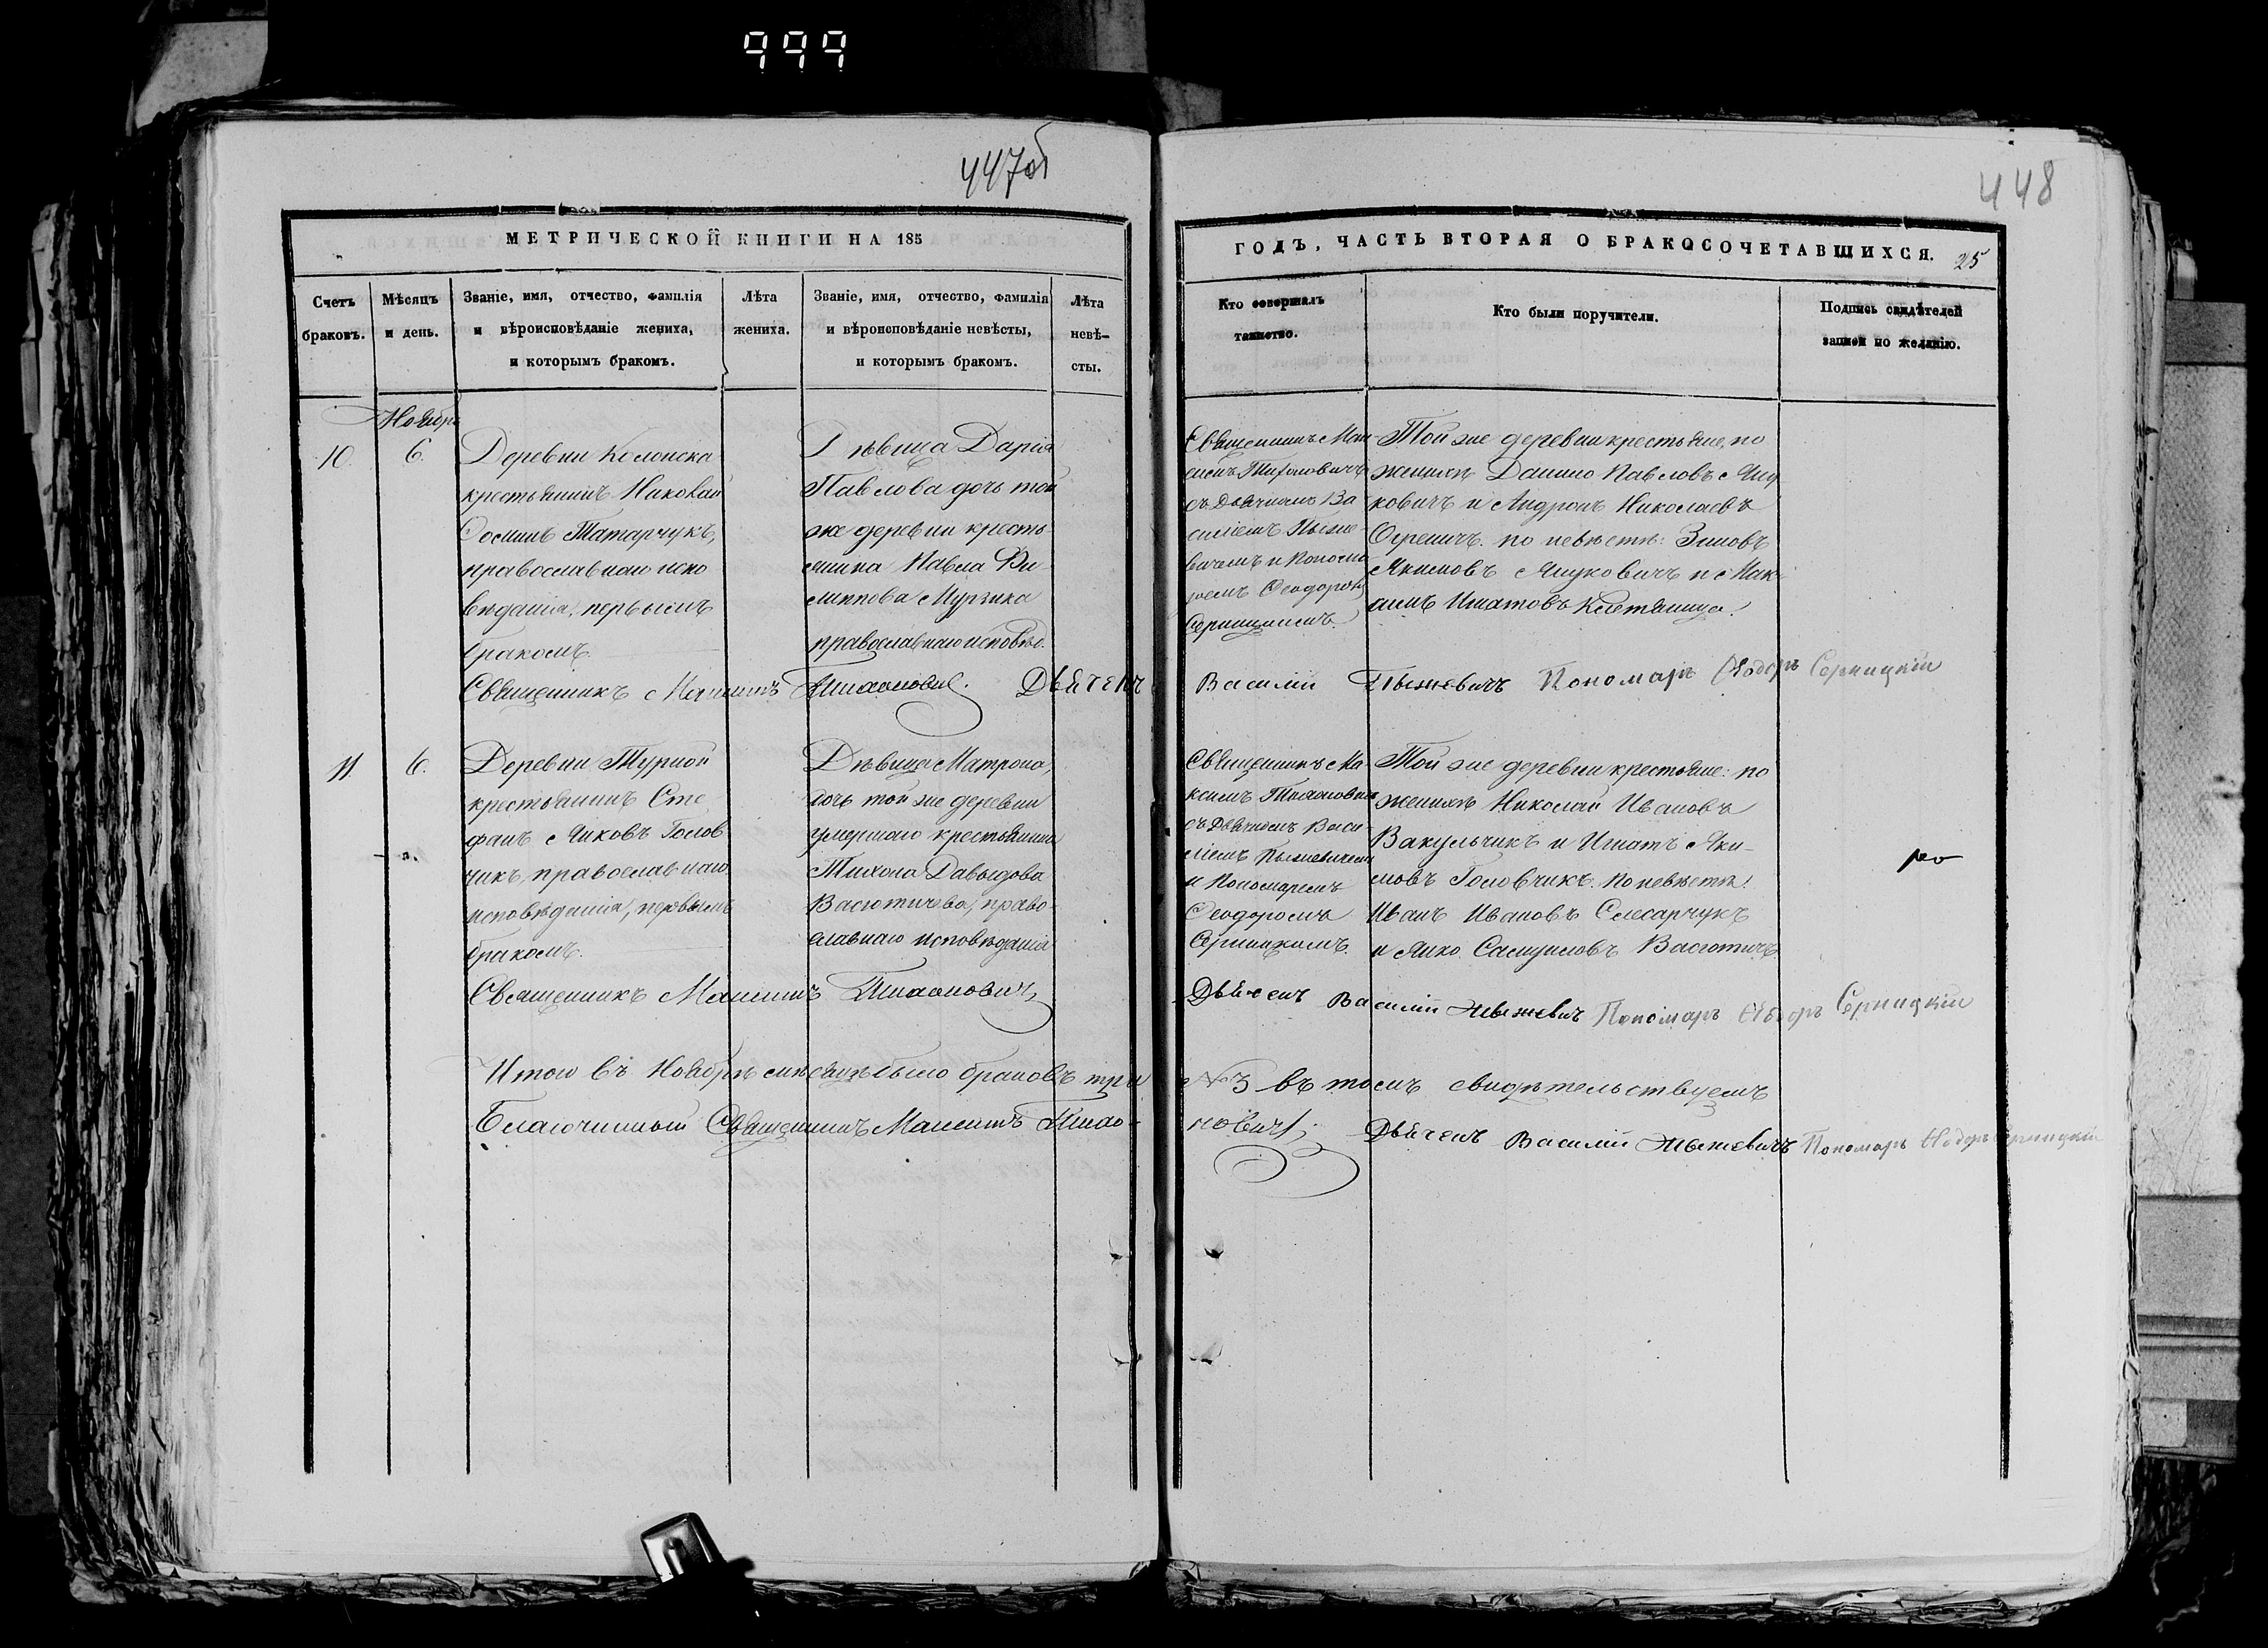 999
447об
448
МЕТРИЧЕСКОЙ КНИГИ НА 185
ГОДЪ, ЧАСТЬ ВТОРАЯ О БРАКОСОЧЕТАВШИХСЯ. 25
Счетъ
браковъ.
Мѣсяцъ
и день.
Званіе, имя, отчество, фамилія
и вѣроисповѣданіе жениха,
и которымъ бракомъ.
Лѣта
жениха.
Званіе, имя, отчество, фамилія
и вѣроисповѣданіе невѣсты,
и которымъ бракомъ.
Лѣта
невѣ-
сты.
Кто совершалъ
таинство.
Кто были поручители.
Подпись свидѣтелей
записи по желанію.
Ноябрь
10.
6.
Деревни
крестьянинъ Николай
Татарчукъ,
православнаго испо
вѣданія, первымъ
бракомъ.
Дѣвица Дарія
Павлова дочь той
же деревни кресть
янина Павла Фи-
липпова Мурзика
православнаго исповѣд.
Священникъ Мак-
симъ
съ Дьячкомъ Ва
силіемъ
и Пономо
ремъ Ѳеодоромъ
Серницкимъ.
Той же деревни крестьяне, по
женихѣ Данило Павловъ Яцу
ковичъ и Андронъ Николаевъ
по невѣстѣ: Зиновъ
Якимовъ Яцуковичъ и Мак-
симъ Игнатовъ
Священникъ Максимъ Тихоновичъ. Дьячекъ Василій Пономарь Ѳеодоръ Серницкій
11.
6.
Деревни Турной
крестьянинъ Сте
фанъ Яковъ Голов
чикъ, православнаго
исповѣданія, первымъ
бракомъ.
Дѣвица Матрона,
дочь той же деревни
умершаго крестьянина
Тихона Давыдова
Васютичева, право-
славнаго исповѣданія
Священникъ Ма-
ксимъ Тихоновичъ
съ Дьячкомъ Васи-
ліемъ
и Пономаремъ
Ѳеодоромъ
Серницкимъ.
Той же деревни крестьяне: по
женихѣ Николай Ивановъ
Вакульчикъ и Игнатъ Яки-
мовъ Головчикъ. По невѣстѣ:
Иванъ Ивановъ Слесарчукъ
и Янко Самуиловъ Васютичъ
Священникъ Максимъ Тихоновичъ Дьячекъ Василій Пономарь Ѳеодоръ Серницкій
Итого въ Ноябрѣ мѣсяцѣ было браковъ три № 3 въ томъ свидѣтельствуемъ
Благочинный Священникъ Максимъ Тихо-
новичъ Дьячекъ Василій Пономарь Ѳеодоръ Серницкій